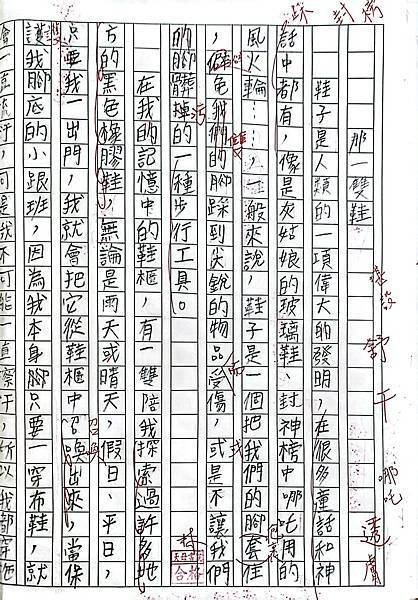 踩 封 膚
舒
干
哪吒
透膚
那一雙鞋
鞋子是人類的一項偉大的發明,在很多童話和神
話中都有,像是灰姑娘的玻璃鞋、封神榜中哪吒用的
風火輪……,一般來說,鞋子是一個把我們的腳套住
雙
而
,我們的腳踩到尖銳的物品受傷,或是不讓我們
的腳髒掉的一種步行工具。
污
合格
在我的記憶中的鞋櫃,有一雙陪我探索過許多地
方的黑色橡膠鞋,無論是雨天或晴天,假日、平日,
只要我一出門,我就會把它從鞋櫃中召喚出來,當保
召喚
護我腳底的小跟班,因為我本身腳只要一穿布鞋,就
護
會一直流汗,可是我不可能一直擦汗,所以我都穿他